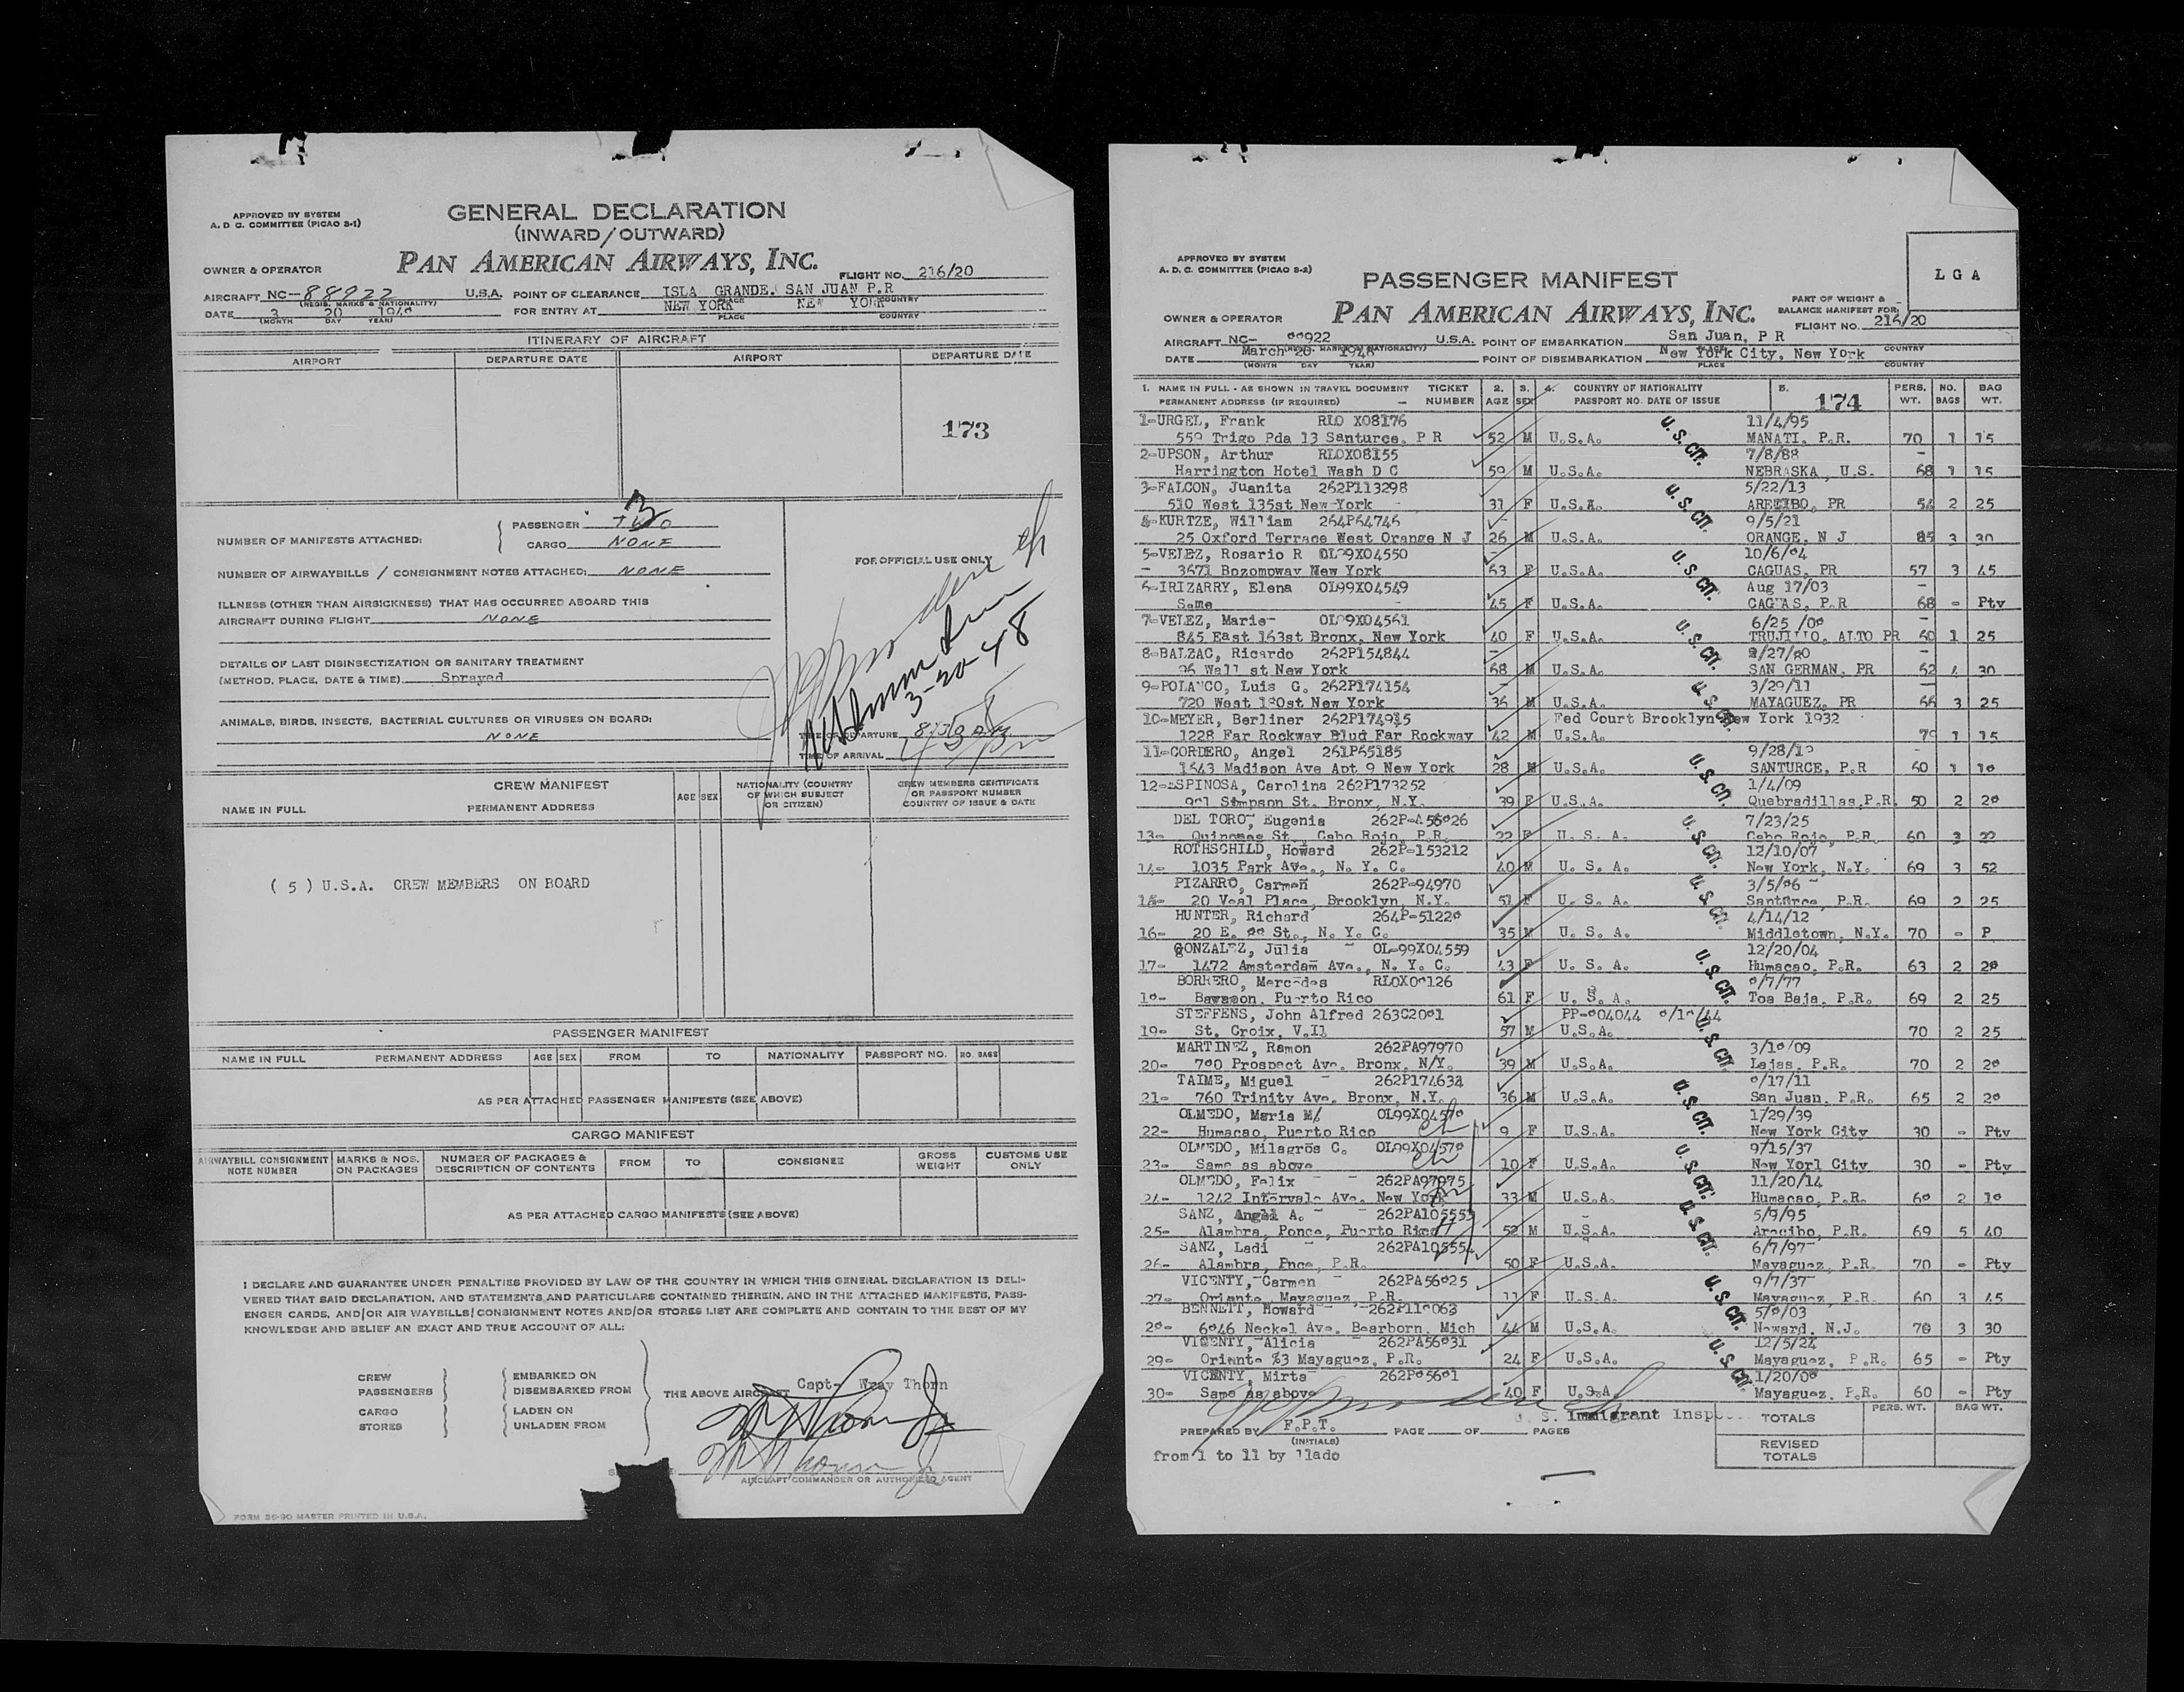 APPROVED BY SYSTEM
A. D. C. COMMITTEE (PICAO S-1)
GENERAL DECLARATION
(INWARD/OUTWARD)
OWNER & OPERATOR
PAN AMERICAN AIRWAYS, INC.
FLIGHT NO. 216/20
AIRCRAFT NC- 88922 U.S.A. POINT OF CLEARANCE ISLA GRANDE. SAN JUAN P.R
(REGIS. MARKS & NATIONALITY) PLACE COUNTRY
DATE 3 20 FOR ENTRY AT NEW YORK NEW YORK
(MONTH DAY YEAR) PLACE COUNTRY
ITINERARY OF AIRCRAFT
AIRPORT DEPARTURE DATE AIRPORT DEPARTURE DATE
173
NUMBER OF MANIFESTS ATTACHED: PASSENGER TWO 3
CARGO NONE
NUMBER OF AIRWAYBILLS / CONSIGNMENT NOTES ATTACHED: NONE
ILLNESS (OTHER THAN AIRSICKNESS) THAT HAS OCCURRED ABOARD THIS
AIRCRAFT DURING FLIGHT NONE
DETAILS OF LAST DISINSECTIZATION OR SANITARY TREATMENT
(METHOD, PLACE, DATE & TIME) Sprayed
ANIMALS, BIRDS, INSECTS, BACTERIAL CULTURES OR VIRUSES ON BOARD:
NONE
FOR OFFICIAL USE ONLY
3-20-48
TIME OF DEPARTURE
TIME OF ARRIVAL
CREW MANIFEST
NAME IN FULL PERMANENT ADDRESS AGE SEX NATIONALITY (COUNTRY OF WHICH SUBJECT OR CITIZEN) CREW MEMBERS CERTIFICATE OR PASSPORT NUMBER COUNTRY OF ISSUE & DATE
( 5 ) U.S.A. CREW MEMBERS ON BOARD
PASSENGER MANIFEST
NAME IN FULL PERMANENT ADDRESS AGE SEX FROM TO NATIONALITY PASSPORT NO. NO. BAGS
AS PER ATTACHED PASSENGER MANIFESTS (SEE ABOVE)
CARGO MANIFEST
AIRWAYBILL CONSIGNMENT NOTE NUMBER MARKS & NOS. ON PACKAGES NUMBER OF PACKAGES & DESCRIPTION OF CONTENTS FROM TO CONSIGNEE GROSS WEIGHT CUSTOMS USE ONLY
AS PER ATTACHED CARGO MANIFESTS (SEE ABOVE)
I DECLARE AND GUARANTEE UNDER PENALTIES PROVIDED BY LAW OF THE COUNTRY IN WHICH THIS GENERAL DECLARATION IS DELI-
VERED THAT SAID DECLARATION, AND STATEMENTS AND PARTICULARS CONTAINED THEREIN, AND IN THE ATTACHED MANIFESTS, PASS-
ENGER CARDS, AND/OR AIR WAYBILLS/CONSIGNMENT NOTES AND/OR STORES LIST ARE COMPLETE AND CONTAIN TO THE BEST OF MY
KNOWLEDGE AND BELIEF AN EXACT AND TRUE ACCOUNT OF ALL:
CREW EMBARKED ON
PASSENGERS DISEMBARKED FROM
CARGO LADEN ON
STORES UNLADEN FROM
THE ABOVE AIRCRAFT Capt- Wray Thorn
AIRCRAFT COMMANDER OR AUTHORIZED AGENT
FORM 26-90 MASTER PRINTED IN U.S.A.
APPROVED BY SYSTEM
A. D. C. COMMITTEE (PICAO S-2)
PASSENGER MANIFEST
LGA
PART OF WEIGHT &
BALANCE MANIFEST FOR:
OWNER & OPERATOR
PAN AMERICAN AIRWAYS, INC.
FLIGHT NO. 216/20
AIRCRAFT NC- U.S.A. POINT OF EMBARKATION San Juan, P R
DATE March 20 1948 POINT OF DISEMBARKATION New York City, New York
(MONTH DAY YEAR) PLACE COUNTRY
1. NAME IN FULL - AS SHOWN IN TRAVEL DOCUMENT TICKET 2. 3. 4. COUNTRY OF NATIONALITY 5. PERS. NO. BAG
PERMANENT ADDRESS (IF REQUIRED) NUMBER AGE SEX PASSPORT NO. DATE OF ISSUE 174 WT. BAGS WT.
1-URGEL, Frank RLO X08176 11/4/95
559 Trigo Pda 13 Santurce, P R 52 M U.S.A. MANATI, P.R. 70 1 15
2-UPSON, Arthur RLOX08155 7/8/88
Harrington Hotel Wash D C 59 M U.S.A. NEBRASKA, U.S. 68 1 15
3-FALCON, Juanita 262P113298 5/22/13
510 West 135st New-York 31 F U.S.A. ARECIBO, PR 54 2 25
4-KURTZE, William 264P64746 9/5/21
25 Oxford Terrace West Orange N J 26 M U.S.A. ORANGE, N J 85 3 30
5-VELEZ, Rosario R 10/6/04
3671 Bozompway New York 63 F U.S.A. CAGUAS, PR 57 3 45
6-IRIZARRY, Elena OL99X04549 Aug 17/03
Same 45 F U.S.A. CAGUAS, P.R 68 - Pty
7-VELEZ, Marie- 6/25
845 East 163st Bronx, New York 40 F U.S.A. TRUJILLO, ALTO PR 60 1 25
8-BALZAC, Ricardo 262P154844
Wall st New York 68 M U.S.A. SAN GERMAN, PR 62 4 30
9-POLANCO, Luis G. 262P174154 3/29/11
720 West 180st New York 36 M U.S.A. MAYAGUEZ, PR 66 3 25
10-MEYER, Berliner 262P174915 Fed Court Brooklyn New York 1932
1228 Far Rockway Blud Far Rockway 42 M U.S.A. 1 15
11-CORDERO, Angel 261P65185
1643 Madison Ave Apt 9 New York 28 M U.S.A. SANTURCE, P.R 60 1
12-ESPINOSA, Carolina 262P173252 1/4/09
Simpson St. Bronx, N.Y. 39 F U.S.A. Quebradillas,P.R. 50 2
DEL TORO, Eugenia 7/23/25
13- St. Cabo Rojo, P.R. 22 F U. S. A. Cabo Rojo, P.R. 60 3 22
ROTHSCHILD, Howard 262P-153212 12/10/07
14- 1035 Park Ave., N. Y. C. 40 M U. S. A. New York, N.Y. 69 3 52
PIZARRO, Carmen 262P-94970
15- 20 Veal Place, Brooklyn, N.Y. 51 F U. S. A. Santurce, P.R. 69 2 25
HUNTER, Richard 4/14/12
16- 20 E. St., N. Y. C. 35 M U. S. A. Middletown, N.Y. 70 - P
GONZALEZ, Julia OL-99X04559 12/20/04
17- 1472 Amsterdam Ave., N. Y. C. 43 F U. S. A. Humacao, P.R. 63 2
BORRERO, Mercedes
Puerto Rico 61 F U. S. A. Toa Baja, P.R. 69 2 25
STEFFENS, John Alfred
19- St. Croix, V.Il 57 M U.S.A. 70 2 25
MARTINEZ, Ramon 262PA97970
20- Prospect Ave. Bronx, N/Y. 39 M U.S.A. Lajas, P.R. 70 2
TAIME, Miguel
21- 760 Trinity Ave. Bronx, N.Y. 36 M U.S.A. San Juan, P.R. 65 2
OLMEDO, Maria M/ 1/29/39
22- Humacao, Puerto Rico 9 F U.S.A. New York City 30 - Pty
OLMEDO, Milagros C. 9/15/37
23- Same as above 10 F U.S.A. New Yorl City 30 - Pty
OLMEDO, Felix 262PA97975 11/20/14
24- 1242 Intervale Ave. New York 33 M U.S.A. Humacao, P.R. 2
SANZ, Angel A. 262PA105553 5/9/95
25- Alambra, Ponce, Puerto Rico 52 M U.S.A. Arecibo, P.R. 69 5 40
SANZ, Ladi 262PA105554 6/7/97
26- Alambra, Pnce, P.R. 50 F U.S.A. Mayaguez, P.R. 70 - Pty
VICENTY, Carmen 9/7/37
27- Oriente, Mayaguez, P.R. 11 F U.S.A. Mayaguez, P.R. 60 3 45
BENNETT, Howard
Neckel Ave. Bearborn, Mich 44 M U.S.A. Neward, N.J. 70 3 30
VICENTY, Alicia 12/5/24
29- Oriente %3 Mayaguez, P.R. 24 F U.S.A. Mayaguez, P.R. 65 - Pty
VICENTY, Mirta
30- Same as above 40 F U.S.A. Mayaguez, P.R. 60 - Pty
U. S. CIT.
U. S. Immigrant Insp
PREPARED BY F.P.T. PAGE OF PAGES
(INITIALS)
from 1 to 11 by llado
TOTALS PERS. WT. BAG WT.
REVISED
TOTALS